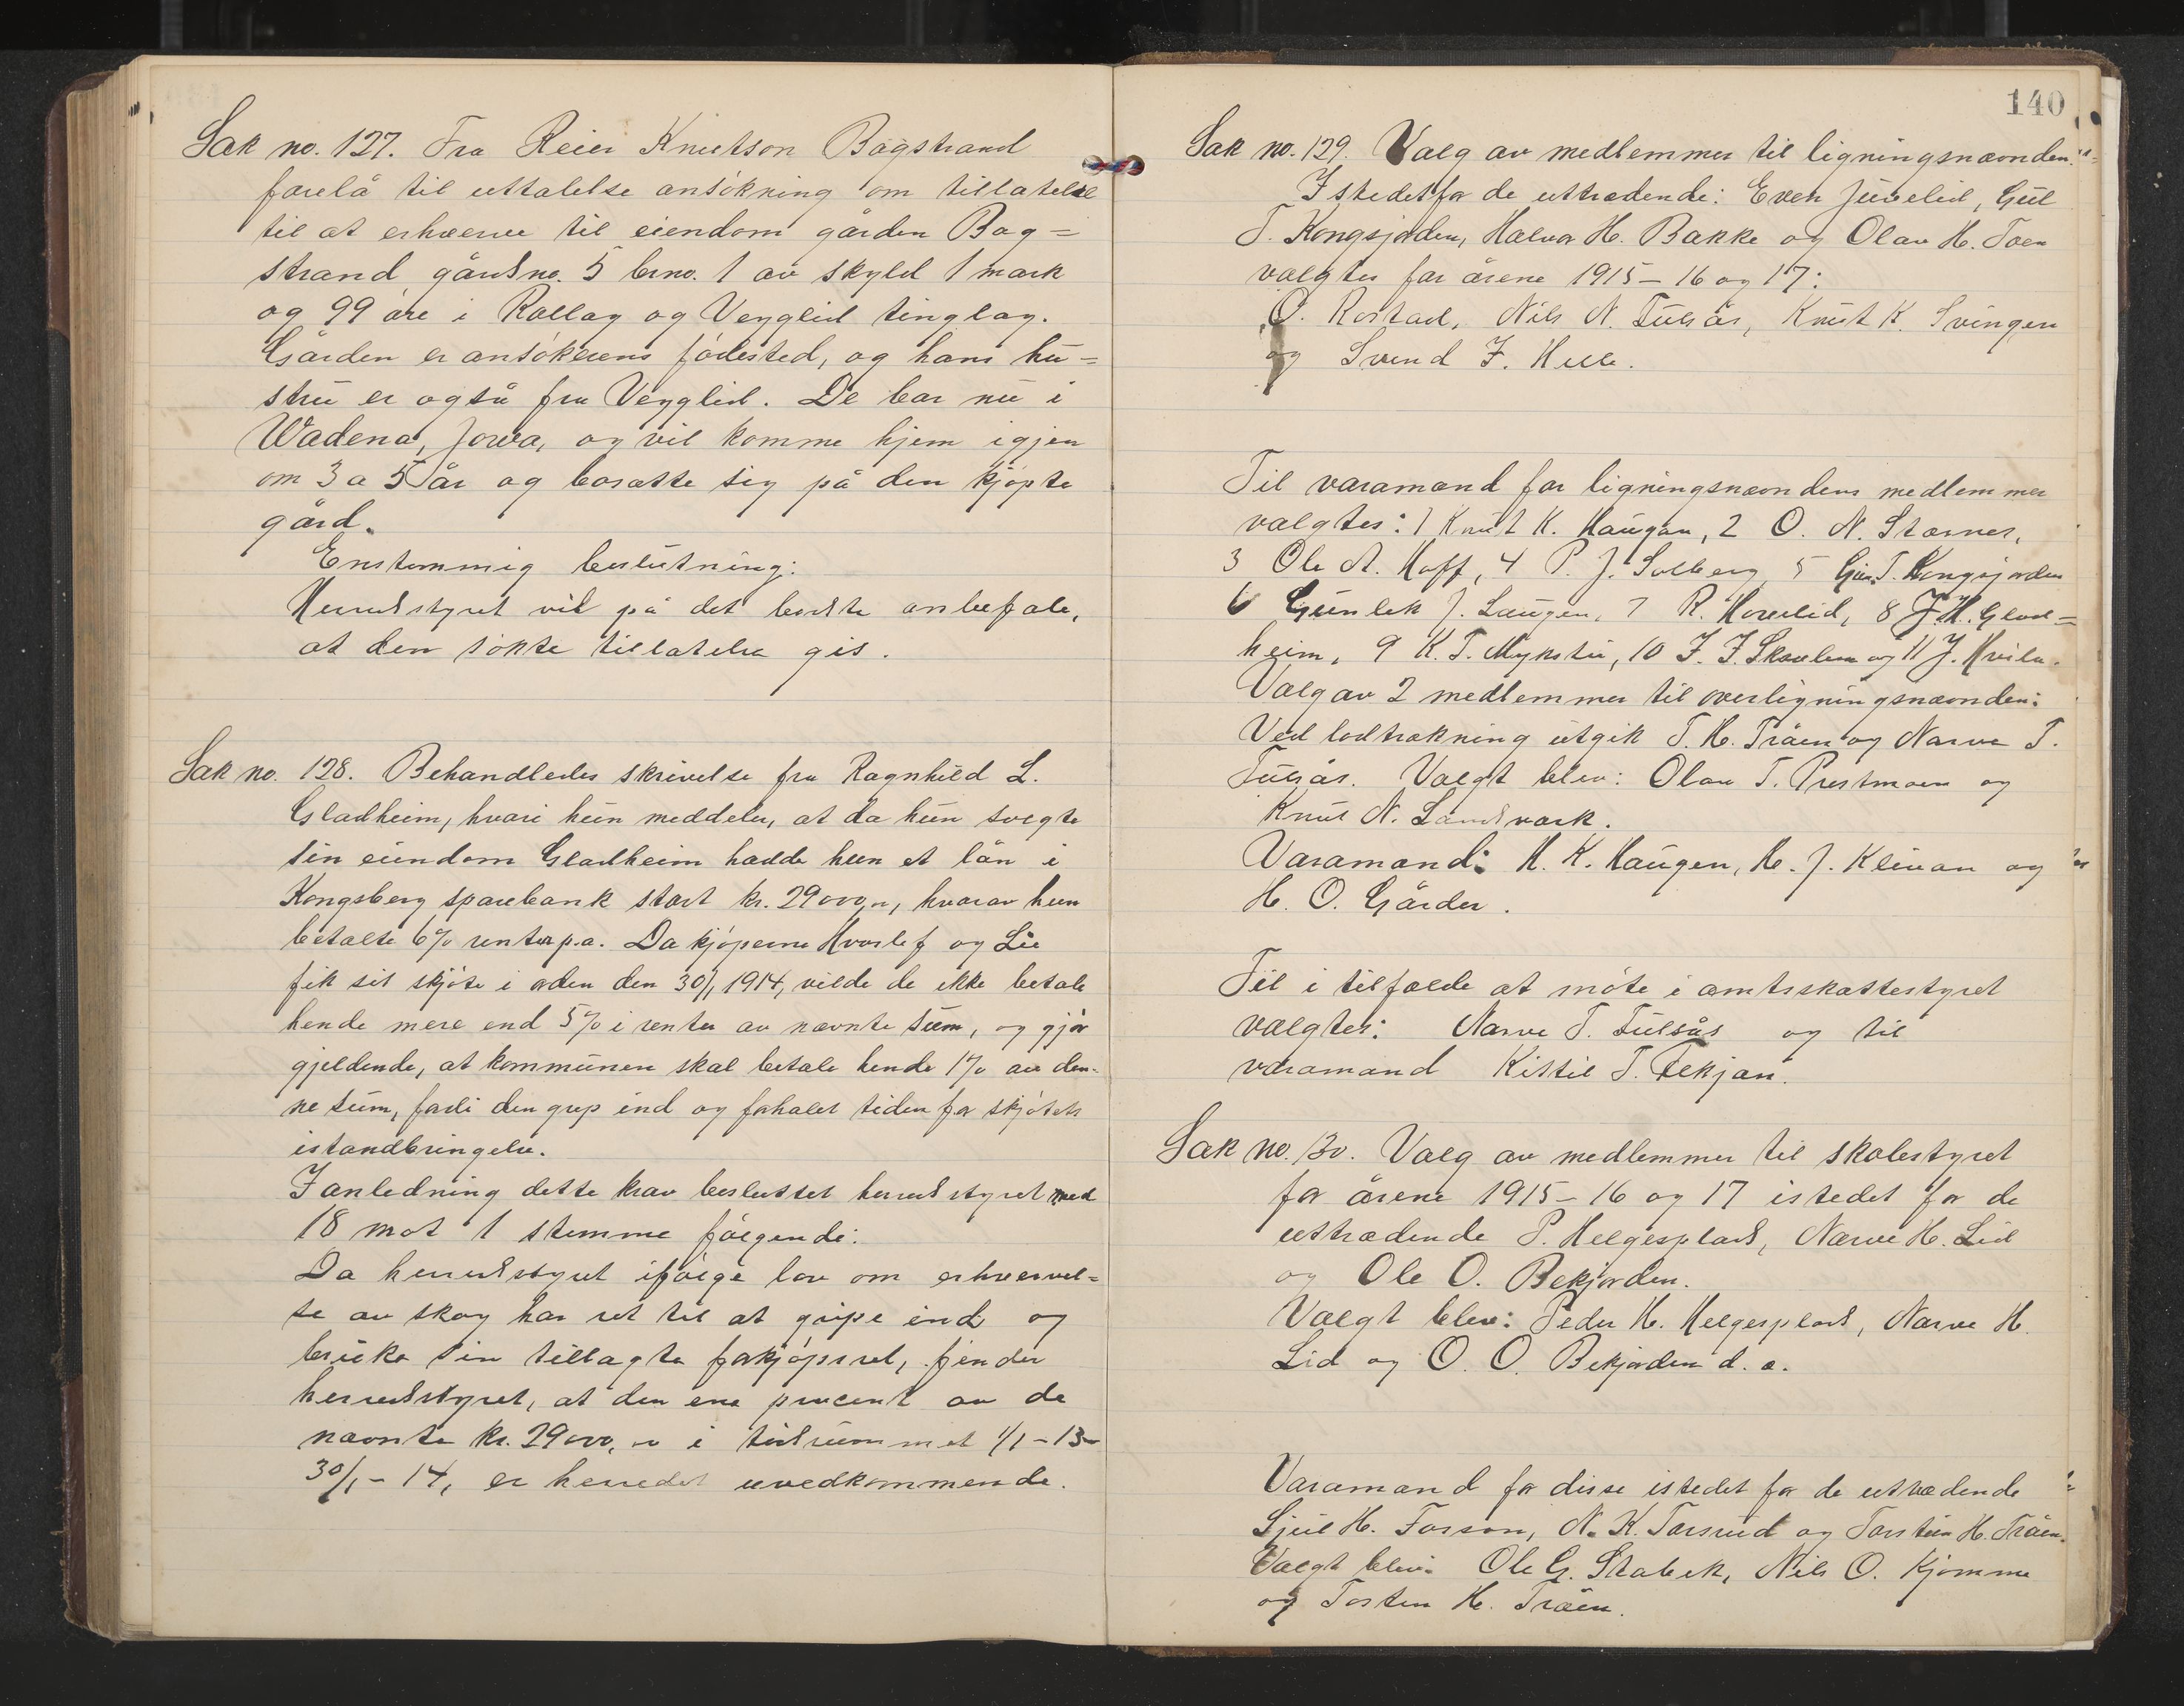 Sak no. 127. Fra Reier Knutson Bågstrand
forelå til uttalelse ansökning om tillatelse
til at erhverve til eiendom gården Bag=
strand gårdsno. 5 brno. 1 av skyld 1 mark
og 99 øre i Rollag og Vegglid tinglag.
Gården er ansökerens födested, og hans hu=
stru er også fra Vegglid. De bor nu i
Wadena, Jowa, og vil komme hjem igjen
om 3 a 5 år og bosætte sig på den kjöpte
gård.
Enstemmig beslutning:
Herredstyret vil på det bedste anbefale,
at den sökte tillatelse gis.
Sak no. 128. Behandledes skrivelse fra Ragnhild L.
Gladheim, hvori hun meddeler, at da hun solgte
sin eiendom Gladheim hadde hun et lån i
Kongsberg sparebank stort kr. 29000,-, hvorav hun
betalte 6% renter p.a. Da kjöperne Hvoslef og Lie
fik sit skjöte i orden den 30/1 1914, vilde de ikke betale
hende mere end 5% i renter av nævnte sum, og gjör
gjeldende, at kommunen skal betale hende 1% av den-
ne sum, fordi den grep ind og forhalet tiden for skjötets
istandbringelse.
I anledning dette krav besluttet herredstyret med
18 mot 1 stemme fölgende:
Da herredstyret ifölge lov om erhvervel=
se av skog har ret til at gripe ind og
bruke sin tillagte forkjöpsret, finder
herredstyret, at den ene procent av de
nævnte kr. 29000,- i tidsrummet 1/1-13-
30/1-14, er herredet uvedkommende.
140
Sak no. 129. Valg av medlemmer til ligningsnævnden.
Istedetfor de uttrædende: Even Juvelid, Gul
T. Kongsjorden, Halvor H. Bakke og Olav H. Toen
valgtes for årene 1915-16 og 17:
O. Rostad, Nils N. Tulsås, Knut K. Svingen
og Svend J. Helle.
Til varamænd for ligningsnævndens medlemmer
valgtes: 1 Knut K. Haugan, 2 O. N. Stærnes,
3 Ole A. Hoff, 4 P. J. Solberg 5 T. Kongsjorden
6 Gunlek J. Laugen, 7 R. Hovelid, 8 J. H. Glad=
heim, 9 K. T. Mykstu, 10 J. J. Skavlem og 11 J. Hvila.
Valg av 2 medlemmer til overligningsnævnden:
Ved lodtrækning utgik T. H. Tråen og Narve T.
Tulsås. Valgt blev: Olav T. Prestmoen og
Knut N. Landsværk.
Varamænd: H. K. Haugen, H. J. Klevan og
H. O. Gårder.
Til i tilfælde at möte i amtsskattestyret
valgtes: Narve T. Tulsås og til
varamand Kittil T. Tekjan.
Sak no. 130. Valg av medlemmer til skolestyret
for årene 1915-16 og 17 istedet for de
uttrædende P. Helgesplads, Narve H. Lid
og Ole O. Bekjorden.
Valgt blev: Peder H. Helgesplads, Narve H.
Lid og O. O. Bekjorden d. e.
Varamænd for disse istedet for de uttrædende
Sjul H. Forson, N. K. Torsrud og Torstein H. Tråen.
Valgt blev: Ole G. Stabek, Nils O. Kjomme
og Tosten H. Tråen.